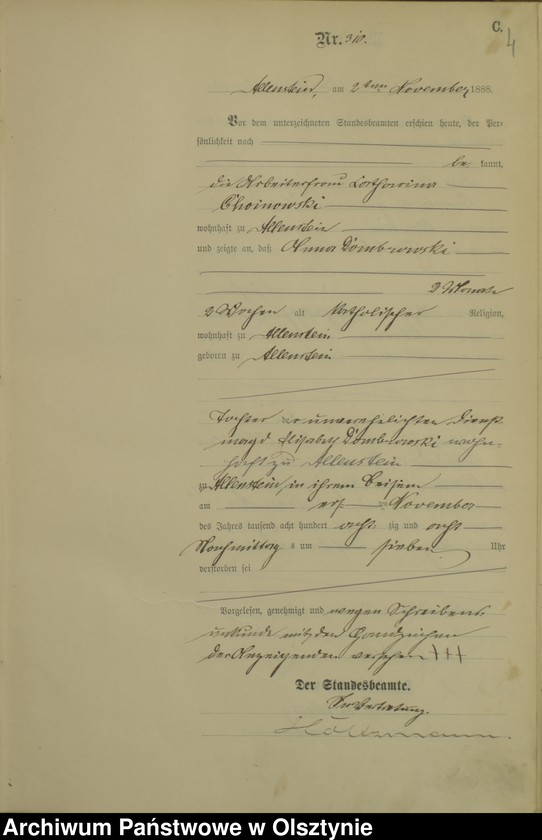 C.
4
Nr. 310.
Allenstein, am 2ten November 1888.
Vor dem unterzeichneten Standesbeamten erschien heute, der Per-
sönlichkeit nach
be kannt,
die Arbeiterfrau Catharina
Choinowski
wohnhaft zu Allenstein
und zeigte an, daß Anna Dombrowski
2 Monate
2 Wochen alt katholischer Religion,
wohnhaft zu Allenstein
geboren zu Allenstein
Tochter der unverehelichten Dienst-
magd Elisabeth Dombrowski wohn-
haft zu Allenstein
zu Allenstein, in ihrem Beisein
am November
des Jahres tausend acht hundert acht zig und acht
Nachmittag s um sieben Uhr
verstorben sei
Vorgelesen, genehmigt und wegen Schreibens-
unkunde mit den Handzeichen
der Anzeigenden versehen +++
Der Standesbeamte.
In Vertretung.
Holtzmann.
Archiwum Państwowe w Olsztynie